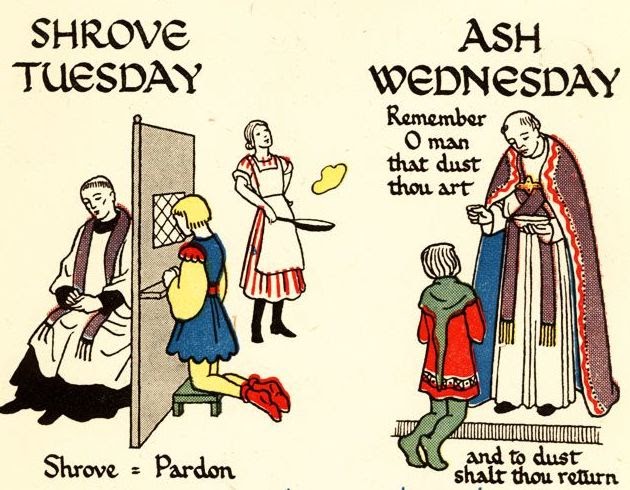 SHROVE
TUESDAY
Shrove = Pardon
ASH
WEDNESDAY
Remember
O man
that dust
thou art
and to dust
shalt thou return